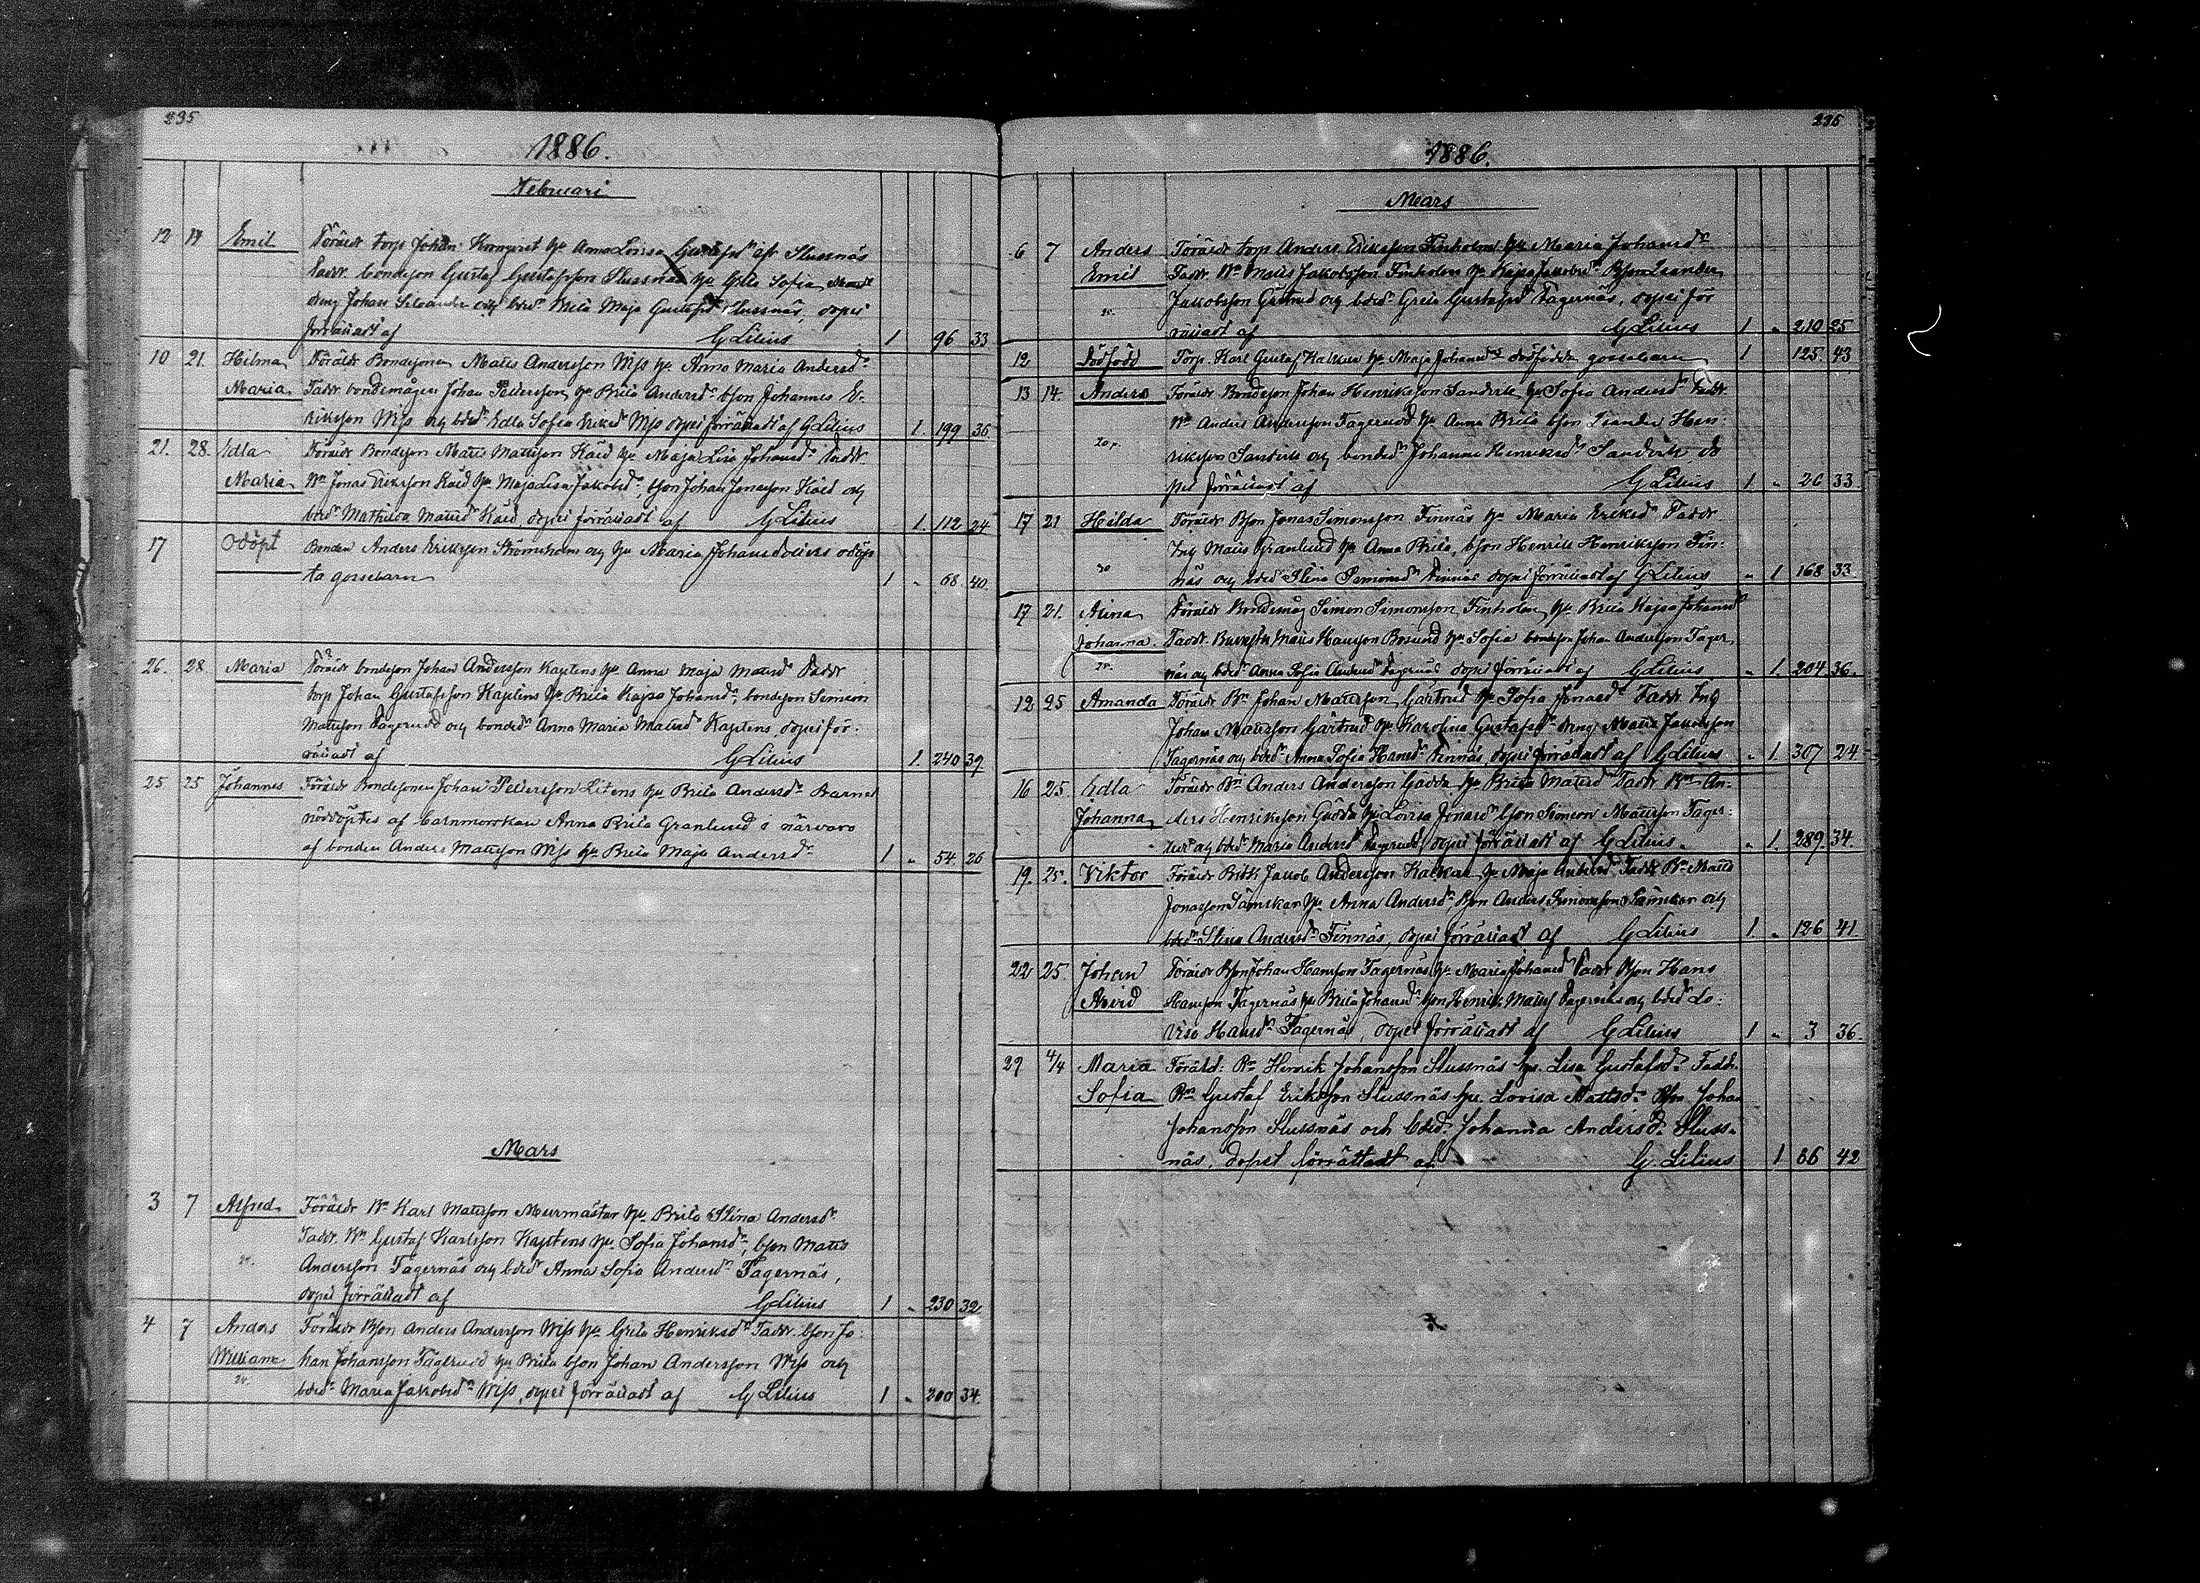 235
1886.
Februari
12 14 Emil Föräldr torp Johan Kronqvist hu Anna Lovisa Gustafsdr Slussnäs
Faddr. bondeson Gustaf Gustafsson Slussnäs hu Greta Sofia
dreng Johan och bdr Brita Maja Gustafsdr Slussnäs, dopet
förrättadt af G Lilius 1 96 33
10 21. Hilma Föräldr Bondesonen Matts Andersson Wiss hu Anna Maria Andersdr
Maria Faddr bondemågen Johan Pettersson hu Brita Andersdr bson Johannes E-
riksson Wiss och bdr Edla Sofia Eriksdr Wiss dopet förrättadt af G Lilius 1. 199 36.
21. 28. Edla Föräldr Bondeson Matts Mattsson Kåid hu Maja Lisa Johansdr Faddr
Maria Bn Jonas Eriksson Kåid hu Maja Lisa Jakobsdr, bson Johan Jonasson Kåid och
bdr Mathilda Mattsdr Kåid dopet förrättadt af G Lilius 1. 112 24
17 Odöpt Bonden Anders Eriksson Strömsholm och hu Maria Johansdotters odöp-
ta gossebarn 1 " 68 40.
26. 28 Maria Föräldr bondeson Johan Andersson Kaptens hu Anna Maja Mattsdr Faddr
torp Johan Gustafsson Kaptens hu Brita Kajsa Johansdr, bondeson Simeon
Mattsson Fagerudd och bondedr Anna Maria Mattsdr Kaptens, dopet för-
rättadt af G Lilius 1 240 39
25 25 Johannes Föräldr Bondesonen Johan Pettersson Litens hu Brita Andersdr Barnet
nöddöptes af barnmorskan Anna Brita Granlund i närvaro
af bonden Anders Mattsson Wiss hu Brita Maja Andersdr 1 " 54. 26
Mars
3 7 Alfred Föräldr Bn Karl Mattsson Murmästar hu Brita Stina Andersdr
Faddr. Bn Gustaf Karlsson Kaptens hu Sofia Johansdr, bson Matts
Andersson Fagernäs och bdr Anna Sofia Andersdr Fagernäs,
dopet förrättadt af G Lilius 1 " 230 32
4 7 Anders Föräldr Bson Anders Andersson Wiss hu Greta Henriksdr Faddr. bson Jo-
William han Johansson Fagerudd hu Brita bson Johan Andersson Wiss och
bdr Maria Jakobsdr Wiss, dopet förrättadt af G Lilius 1 " 200 34.
235
1886.
Mars
6 7 Anders Föräldr torp Anders Eriksson Finholm hu Maria Johansdr
Emil Faddr. Bn Matts Jakobsson Finholm hu Kajsa Jakobsdr Bson Leander
Jakobsson Gertrud och bdr Greta Gustafsdr Fagernäs, dopet för-
rättadt af G Lilius 1 " 210 25
12 Dödfödd Torp. Karl Gustaf Kalkar hu Maja Johansdrs dödfödda gossebarn 1 125. 43
13 14. Anders Föräldr Bondeson Johan Henriksson Sandvik hu Sofia Andersdr Faddr
Bn Anders Andersson Fagerudd hu Anna Brita bson Leander Hen-
riksson Sandvik och bondedr Johanna Henriksdr Sandvik do-
pet förrättadt af G Lilius 1 " 26 33
17 21 Hilda Föräldr Bson Jonas Simonsson Finnäs hu Maria Eriksdr Faddr
Inh Matts Granlund hu Anna Brita, bson Henrik Henriksson Fin-
näs och bdr Stina Simonsdr Finnäs dopet förrättadt af G Lilius " 1 168 33
17 21. Alina Föräldr Bondemåg Simon Simonsson Finholm hu Brita Kajsa Johansdr
Johanna Faddr. Matts Hansson Bosund hu Sofia bondeson Johan Andersson Fager-
näs och bdr Anna Sofia Andersdr Fagernäs dopet förrättadt af G Lilius " 1. 204. 36.
12 25 Amanda Föräldr Bn Johan Mattsson Gertrud hu Sofia Jonasdr Faddr Inh
Johan Mattsson Gertrud hu Karolina Gustafsdr dreng Matts Jakobsson
Fagernäs och bdr Anna Sofia Hansdr Finnäs, dopet förrättadt af G Lilius " 1. 307 24
16 25. Edla Föräldr Bn Anders Andersson Gädda hu Brita Mattsdr Faddr Bn An-
Johanna ders Henriksson Gädda hu Lovisa Jonasdr bson Simeon Mattsson Fager-
och bdr Maria Andersdr Fagerudd, dopet förrättadt af G Lilius. " 1. 289. 34.
19. 25. Viktor Föräldr Jakob Andersson Kalkar hu Maja Andersdr Faddr Bn Matts
Jonasson Sämskar hu Anna Andersdr, Bson Anders Simonsson Sämskar och
bdr Stina Andersdr Finnäs, dopet förrättadt af G Lilius 1. " 126 41.
22 25 Johan Föräldr Bson Johan Hansson Fagernäs hu Maria Johansdr Faddr Bson Hans
Arvid Hansson Fagernäs hu Brita Johansdr bson Henrik Mattss Fagernäs och bdr Lo-
visa Hansdr Fagernäs, dopet förrättadt af G Lilius 1 " 3 36.
29 4/4 Maria Föräld: Bn Henrik Johansson Slussnäs hu. Lisa Gustafsdr. Faddr.
Sofia Bn Gustaf Eriksson Slussnäs hu. Lovisa Mattsdr. Bson Johan
Johansson Slussnäs och bdr. Johanna Andersdr. Sluss-
näs, dopet förrättadt af G. Lilius 1 86 42